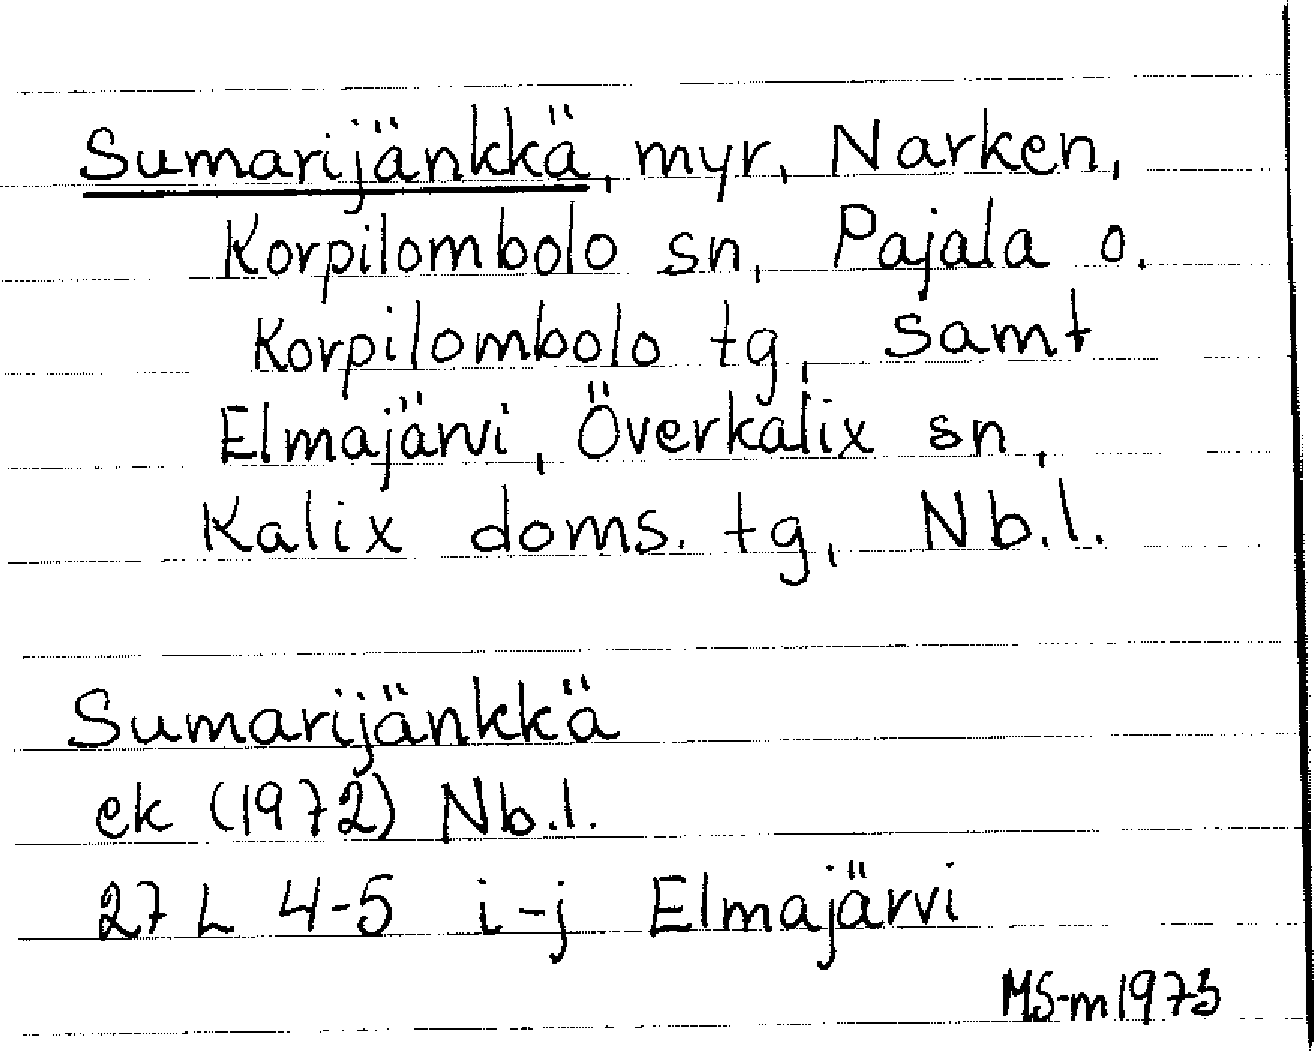 Sumarijänkkä, myr, Narken,
Korpilombolo sn, Pajala o.
Korpilombolo tg, samt
Elmajärvi, Överkalix sn,
Kalix doms. tg, Nb.l.
Sumarijänkkä
ek (1972) Nb.l.
27 L 4-5 i-j Elmajärvi
MS-m 1973